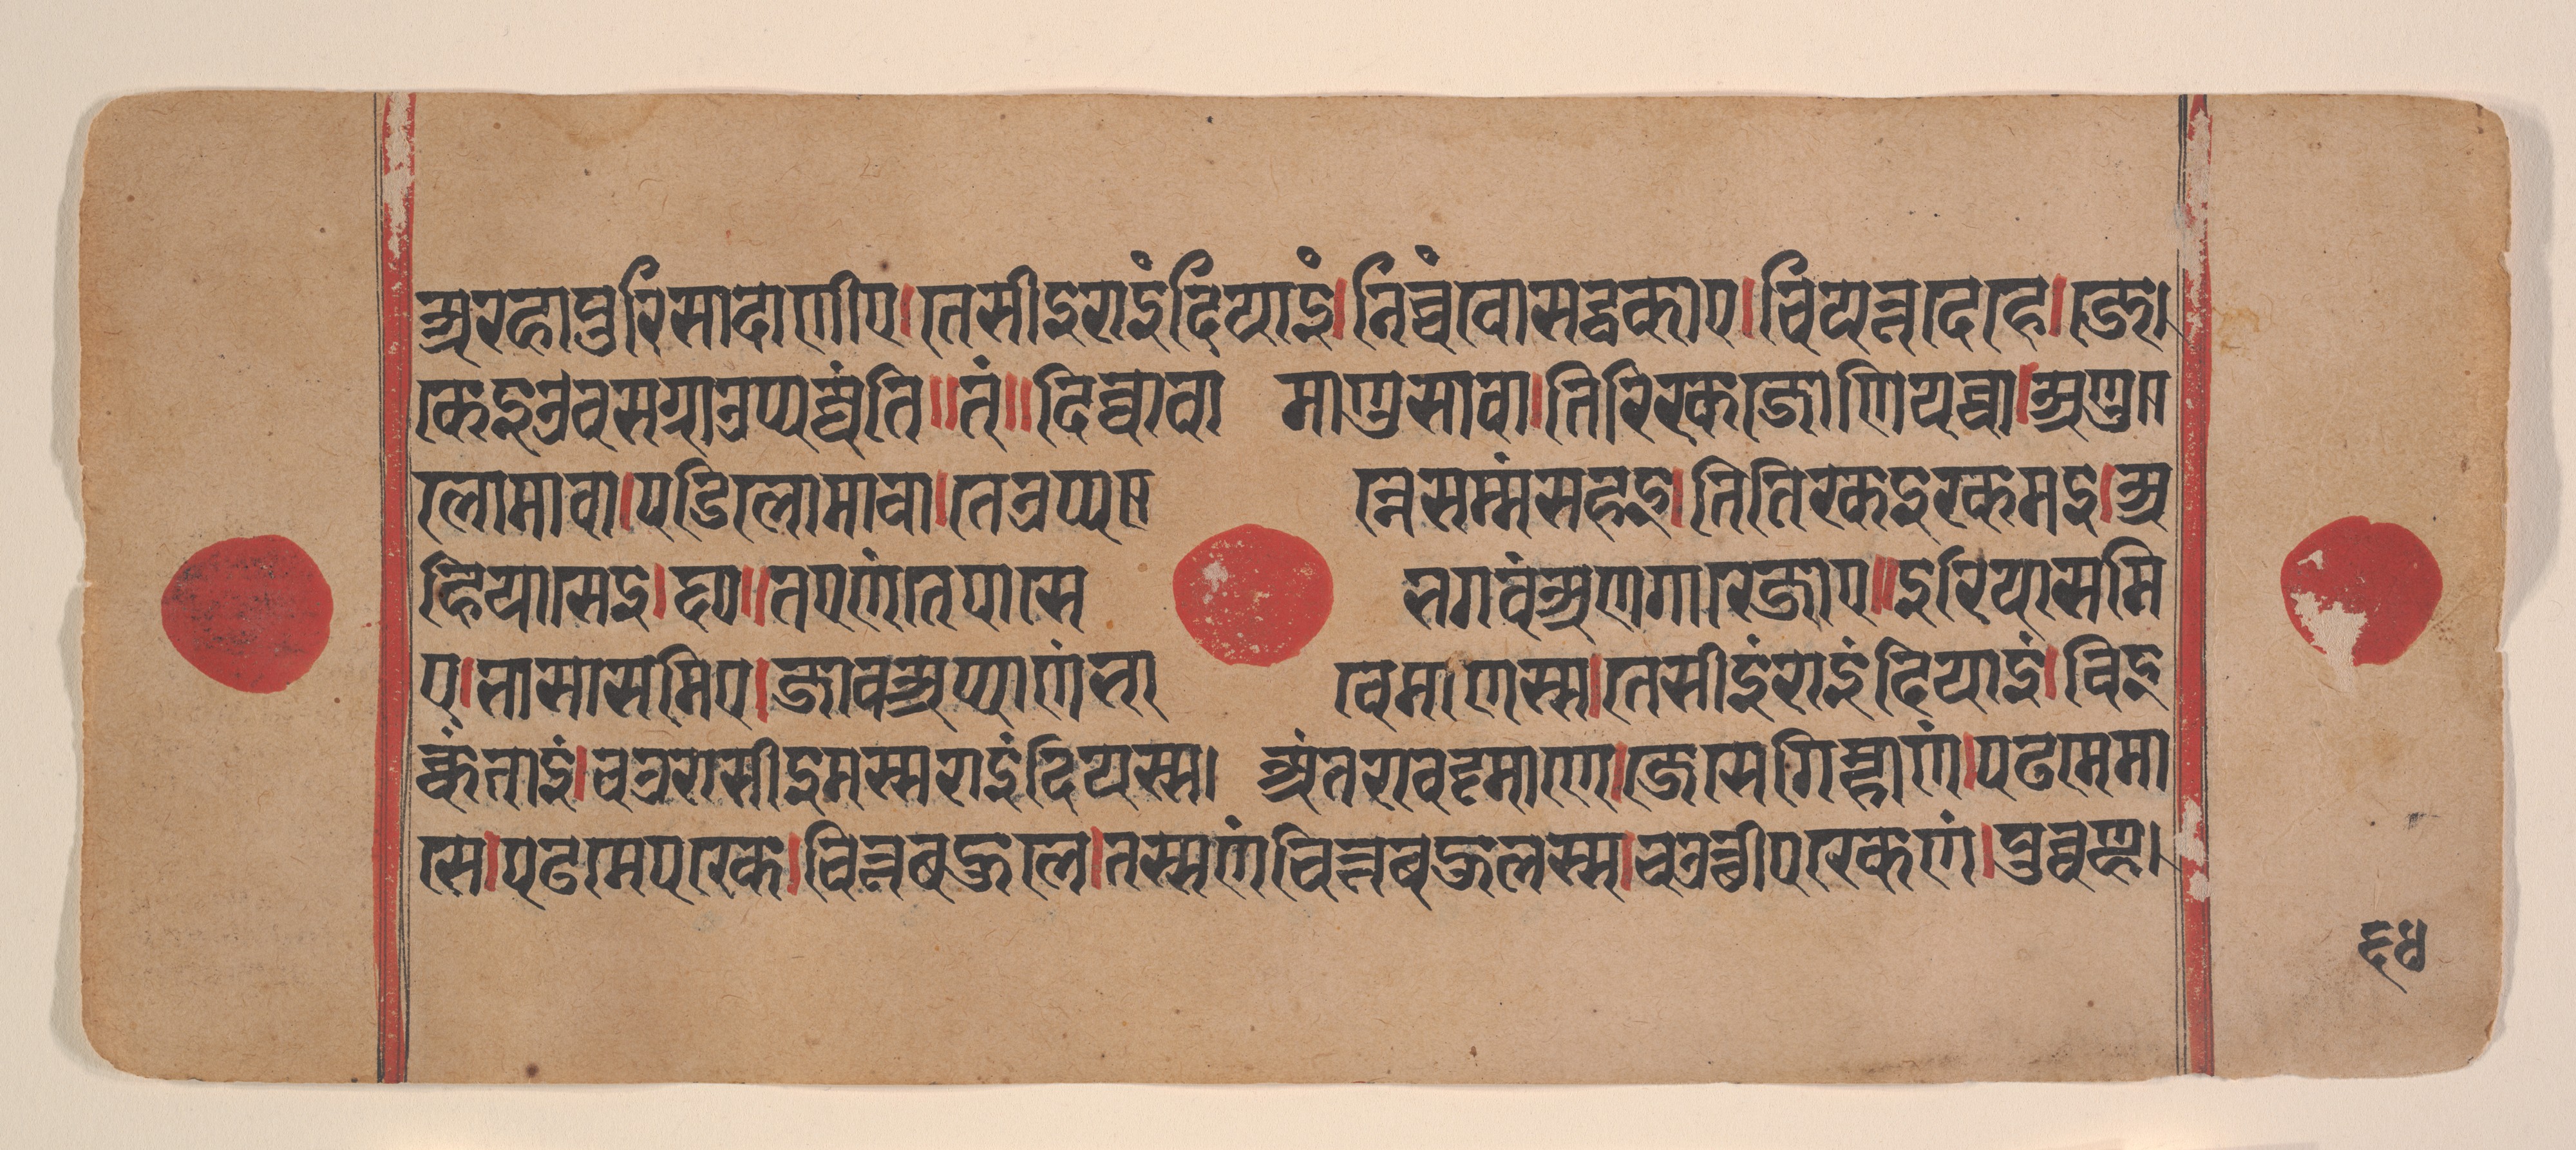 अरहा पुरिसादाणीए । तेसीइ राइंदियाइं । निच्चं वोसट्ठकाए । चियत्तदेहे । जे
केइ उवसग्गा उप्पज्जंति ॥ तं ॥ दिव्वा वा माणुसा वा । तिरिक्खजोणिया वा । अणु
लोमा वा । पडिलोमा वा । ते उप्पन्ने सम्मं सहइ । तितिक्खइ खमइ । अ
हियासेइ । छ ॥ तए णं से पासे भगवं अणगारे जाए ॥ इरियासमि
ए । भासासमिए । जाव अप्पाणं भावेमाणस्स । तेसीइं राइंदियाइं । विइ
क्कंताइं । चउरासीइमस्स राइंदियस्स । अंतरा वट्टमाणे । जे से गिम्हाणं । पढमे मा
से । पढमे पक्खे । चित्तबहुले । तस्स णं चित्तबहुलस्स । चउत्थीपक्खेणं । पुव्वण्ह
६४